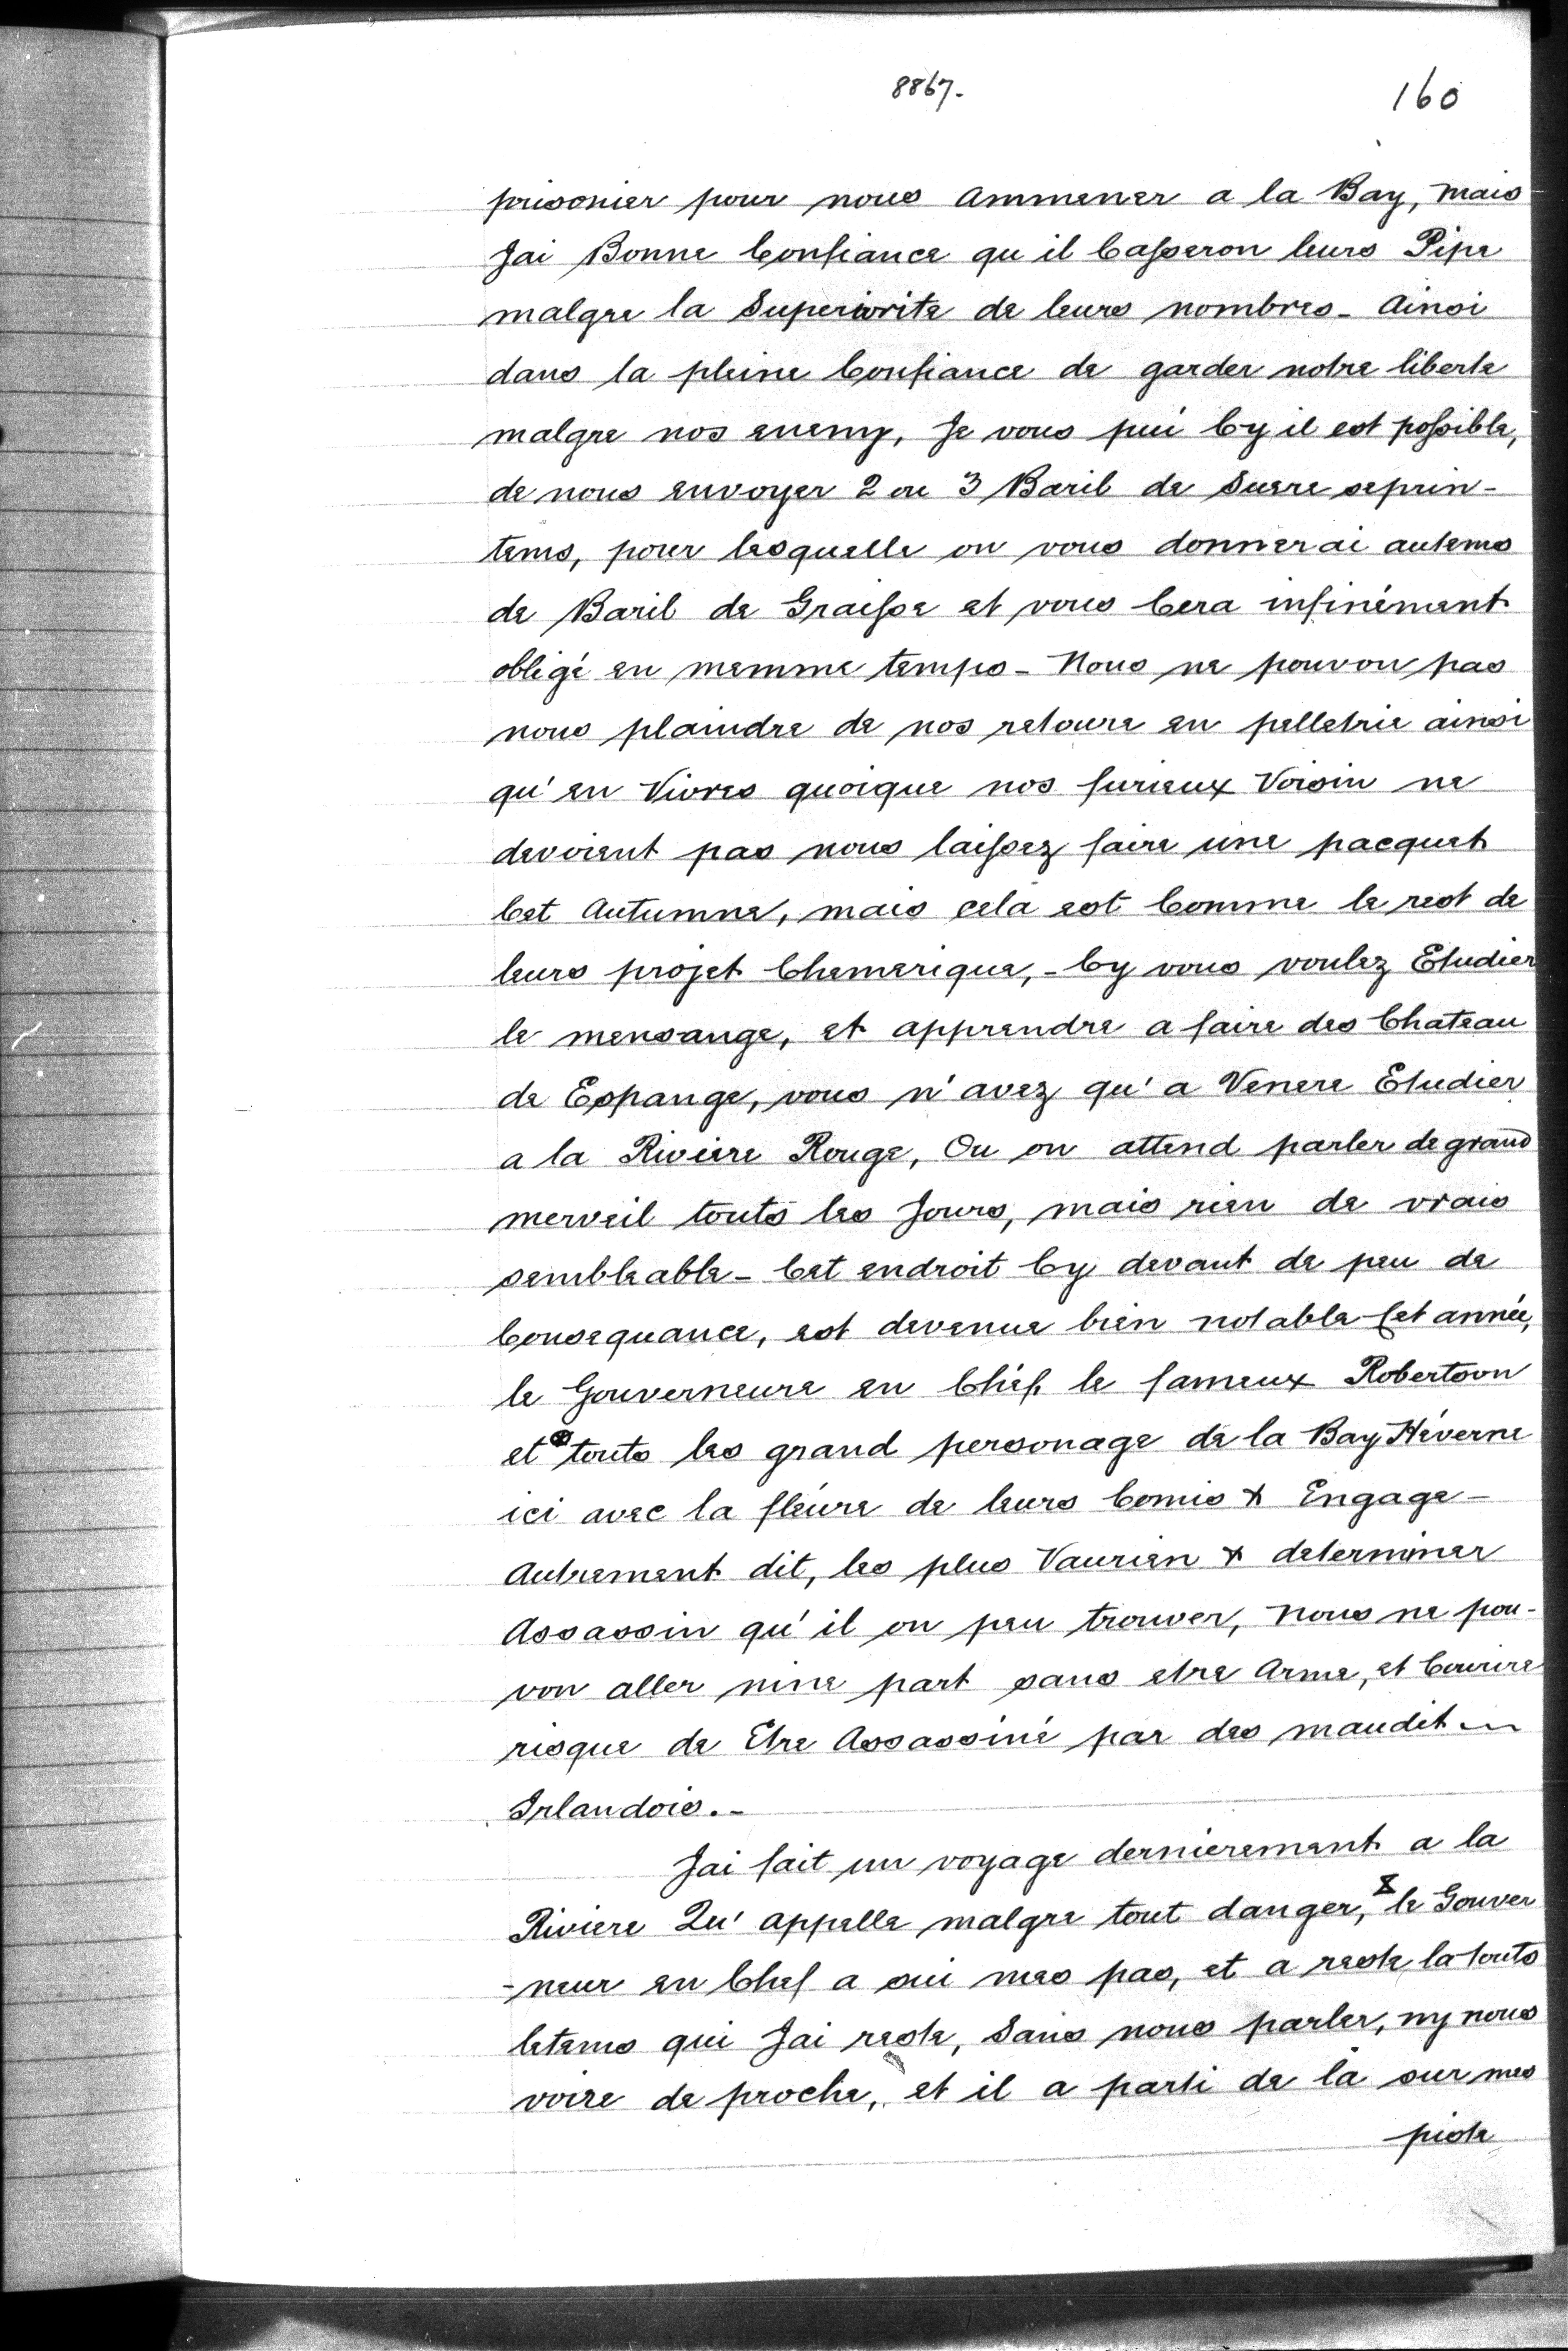 8867.
160
prisonier pour nous ammener a la Bay, mais
Jai Bonne Confiance qu il Casseron leurs Pipe
malgre la Superiorite de leurs nombres - Ainsi
dans la pleine Confiance de garder notre liberte
malgre nos enemy, Je vous prii Cy il est possible,
de nous envoyer 2 ou 3 Baril de Sucre seprin-
tems, pour lesquelle on vous donnerai autems
de Baril de Graisse et vous Cera infinémant
obligé en memme temps - Nous ne pouvon pas
nous plaindre de nos retoure en pelletrie ainsi
qu' en Vivres quoique nos furieux Voisin ne
devoient pas nous laissez faire une pacquet
Cet Autumne, mais cela est Comme le rest de
leurs projet Chemerique, - Cy vous voulez Etudier
le mensange, et apprendre a faire des Chateau
de Espange, vous n' avez qu' a Venere Etudier
a la Riviere Rouge, Ou on attend parler de grand
merveil touts les Jours, mais rien de vrais
sembleable - Cet endroit Cy devant de peu de
Consequance, est devenue bien notable Cet année,
le Gouverneure en Chéf le fameux Robertson
et touts les grand personage de la Bay Héverne
ici avec la fleure de leurs Comis & Engage -
Autrement dit, les plus Vaurien & determiner
Assassin qu' il on peu trouver, Nous ne pou-
von aller nine part sans etre Arme, et Courire
risque de Etre Assassiné par des maudit
Irlandois. -
Jai fait un voyage dernieremant a la
Riviere Qu' appelle malgre tout danger, X le Gouver
-neur en Chef a sui mes pas, et a reste la touts
letems qui Jai reste, Sans nous parler, ny nous
voire de proche, et il a parti de la sur mes
piste